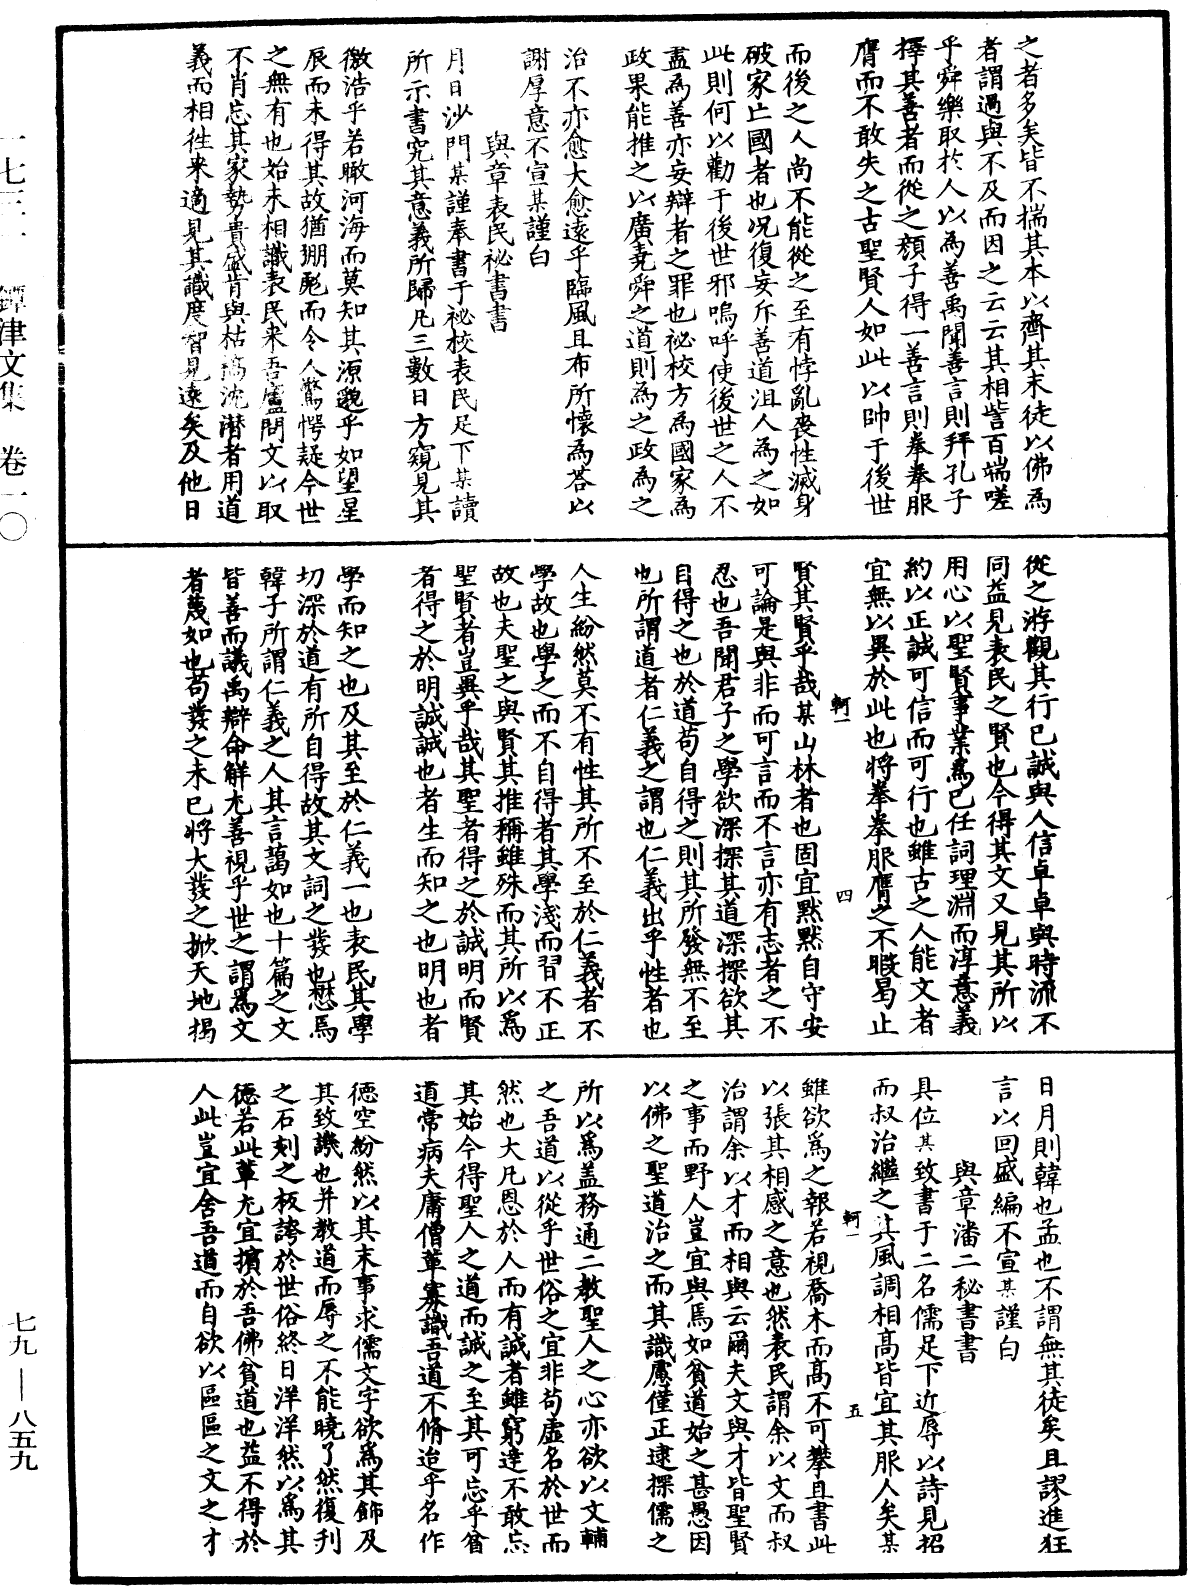 之者多矣皆不揣其本以齊其末徒以佛為
者謂過與不及而因之云云其相訾百端嗟
乎舜樂取於人以為善禹聞善言則拜孔子
擇其善者而從之顏子得一善言則拳拳服
膺而不敢失之古聖賢人如此以帥于後世
而後之人尚不能從之至有悖亂喪性滅身
破家亡國者也况復妄斥善道沮人為之如
此則何以勸于後世邪嗚呼使後世之人不
盡為善亦妄辯者之罪也祕校方為國家為
政果能推之以廣堯舜之道則為之政為之
治不亦愈大愈遠乎臨風且布所懷為荅以
謝厚意不宣某謹白
與章表民祕書書
月日沙門某謹奉書于祕校表民足下某讀
所示書究其意義所歸凡三數日方窺見其
徼浩乎若瞰河海而莫知其源邈乎如望星
辰而未得其故猶珊麗而令人驚愕疑今世
之無有也始未相識表民来吾廬問文以取
不肖忘其家勢貴盛肯與枯槁沈潜者用道
義而相徃来適見其識度智見遠矣及他日
從之游觀其行已誠與人信卓卓與時流不
同益見表民之賢也今得其文又見其所以
用心以聖賢事業為已任詞理淵而淳意義
約以正誠可信而可行也雖古之人能文者
宜無以異於此也将拳拳服膺之不暇曷止
賢其賢乎哉某山林者也固宜默默自守安
可論是與非而可言而不言亦有志者之不
忍也吾聞君子之學欲深探其道深探欲其
自得之也於道苟自得之則其所發無不至
也所謂道者仁義之謂也仁義出乎性者也
人生紛然莫不有性其所不至於仁義者不
學故也學之而不自得者其學淺而習不正
故也夫聖之與賢其推稱雖殊而其所以為
聖賢者豈異乎哉其聖者得之於誠明而賢
者得之於明誠誠也者生而知之也明也者
學而知之也及其至於仁義一也表民其學
切深於道有所自得故其文詞之發也懋焉
韓子所謂仁義之人其言藹如也十篇之文
皆善而議禹辯命解尤善視乎世之謂為文
者蔑如也苟發之未已将大發之掀天地揭
日月則韓也孟也不謂無其徒矣且謬進狂
言以回盛編不宣某謹白
與章潘二秘書書
具位某致書于二名儒足下近辱以詩見招
而叔治繼之其風調相高皆宜其服人矣某
雖欲為之報若視喬木而高不可攀且書此
以張其相感之意也然表民謂余以文而叔
治謂余以才而相與云爾夫文與才皆聖賢
之事而野人豈宜與焉如貧道始之甚愚因
以佛之聖道治之而其識慮僅正逮探儒之
所以為盖務通二教聖人之心亦欲以文輔
之吾道以從乎世俗之宜非苟虛名於世而
然也大凡恩於人而有誠者雖窮達不敢忘
其始今得聖人之道而誠之至其可忘乎貧
道常病夫庸僧輩寡識吾道不脩迨乎名作
德空紛然以其末事求儒文字欲為其飾及
其致譏也并教道而辱之不能曉了然復刋
之石刻之板誇於世俗終日洋洋然以為其
德若此輩尤宜擯於吾佛貧道也益不得於
人此豈宜舍吾道而自欲以區區之文之才
軻一
四
軻一
五
一七三二 鐔津文集 卷一〇
七九——八五九